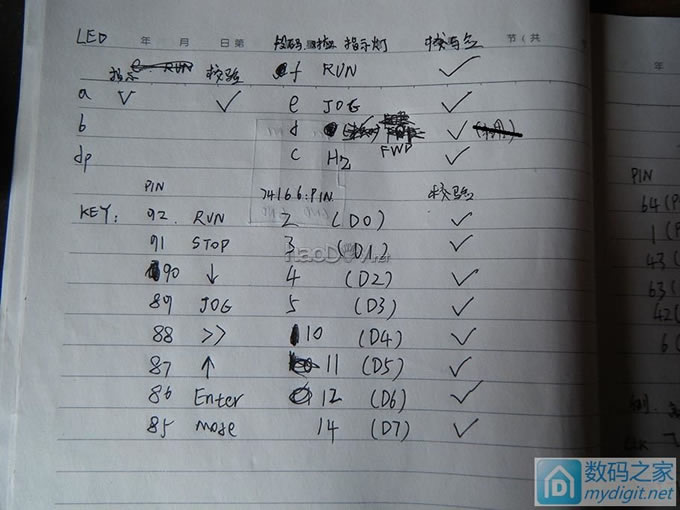 LED 年 月 日 第 段码 指示灯 校验 节(共
指示 校验 f RUN ✓
a ✓ ✓ e JOG ✓
b d FWD ✓
dp c Hz ✓
PIN 74166:PIN 校验
KEY: 92. RUN 2 (D0) ✓
91 STOP 3 (D1) ✓
90 ↓ 4 (D2) ✓
89 JOG 5 (D3) ✓
88 >> 10 (D4) ✓
87 ↑ 11 (D5) ✓
86 Enter 12 (D6) ✓
85 mode 14 (D7) ✓
年
PIN
64(P
1(P
43(
63(
42(
6(
数码之家
mydigit.net